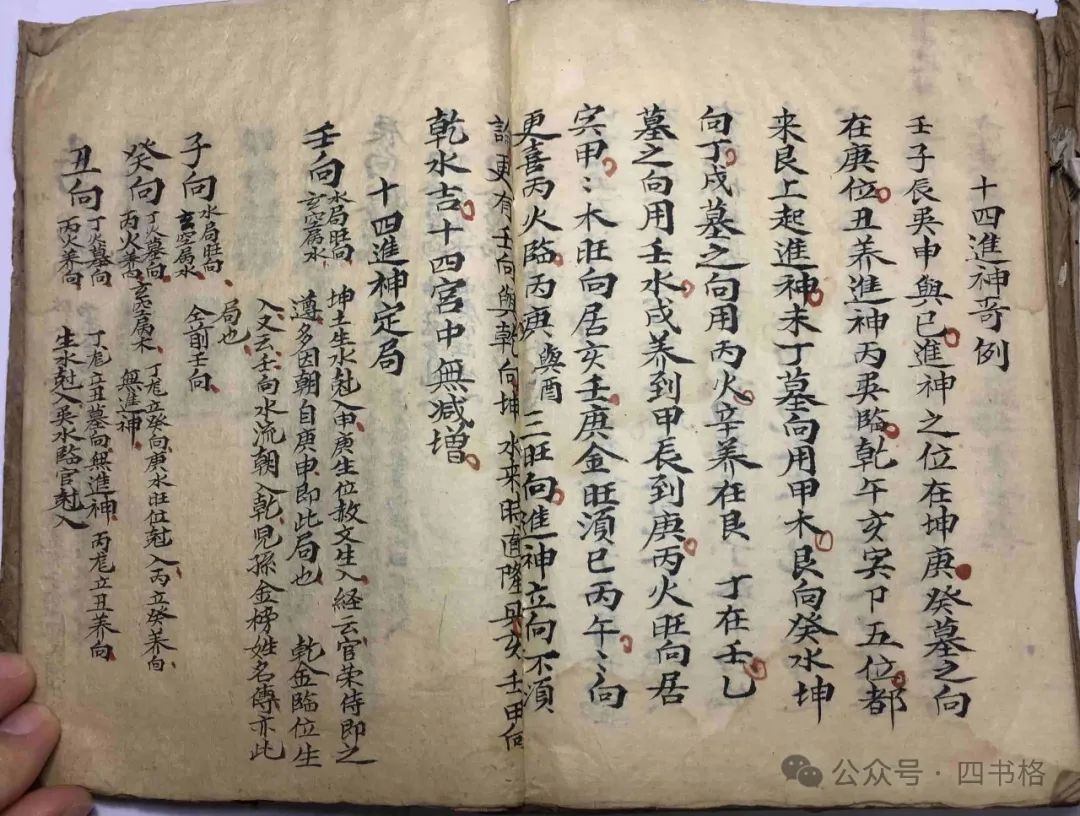 十四進神哥例
壬子辰巽申與巳進神之位在坤庚癸墓之向
在庚位丑养進神丙巽臨乾午亥寅卩五位都
来艮上起進神未丁墓向用甲木艮向癸水坤
向丁戌墓之向用丙火辛养在艮 丁在壬乙
墓之向用壬水戌养到甲辰到庚丙火旺向居
寅甲〻木旺向居亥壬庚金旺湏巳丙午〻向
更喜丙火臨丙庚與酉三旺向進神立向不湏
論更有壬向與乾向坤水来 壬甲向
乾水吉十四宮中無減增
十四進神定局
壬向 水局旺向 玄空属水 坤土生水尅入申庚生位赦文生入経云官荣侍即之
遵多因朝自庚申即此局也 乾金臨位生
入又云壬向水流朝入乾児孫金榜姓名傳亦此
局也
子向 水局旺向 玄空属水 仝前壬向
癸向 丁火墓向 丙火养向 玄空属木 丁龙立癸向庚水旺位尅入丙立癸养向
無進神
丑向 丁火墓向 丙火养向 丁龙立丑墓向無進神 丙龙立丑养向
生水尅入巽水臨官尅入
公众号·四书格